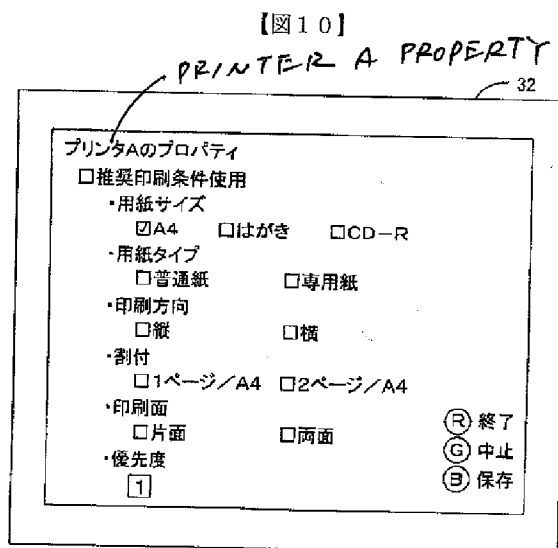 【図10】
PRINTER A PROPERTY
32
プリンタAのプロパティ
□推奨印刷条件使用
・用紙サイズ
☑A4 □はがき □CD－R
・用紙タイプ
□普通紙 □専用紙
・印刷方向
□縦 □横
・割付
□1ページ／A4 □2ページ／A4
・印刷面
□片面 □両面
・優先度
1
Ⓡ 終了
Ⓖ 中止
Ⓑ 保存